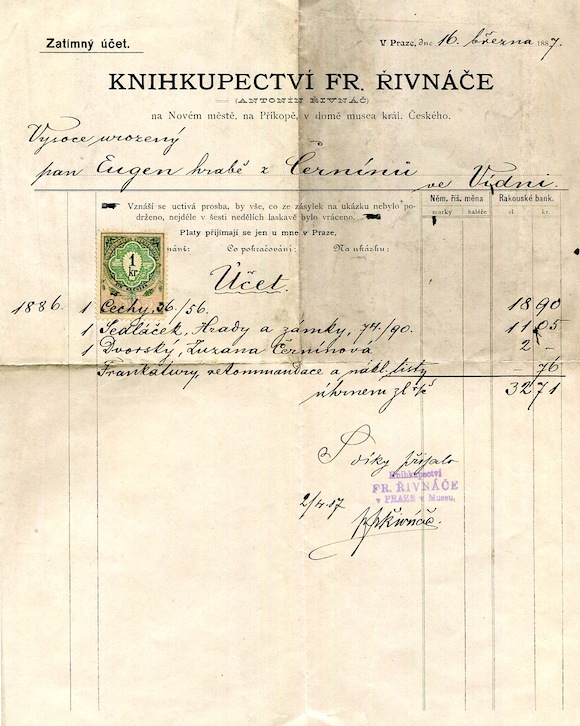 Zatímný účet.
V Praze, dne 16. března 1887.
KNIHKUPECTVÍ FR. ŘIVNÁČE
(ANTONÍN ŘIVNÁČ)
na Novém městě, na Příkopě, v domě musea král. Českého.
Vysoce urozený
pan Eugen hrabě z Černínů ve Vídni.
Vznáší se uctivá prosba, by vše, co ze zásylek na ukázku nebylo po-
drženo, nejdéle v šesti nedělích laskavě bylo vráceno.
Platy přijímají se jen u mne v Praze,
Něm. říš. měna
Rakouské bank.
marky haléře
zl. kr.
Co pokračování: Na ukázku:
1 kr.
Účet.
1886. 1 Čechy, 36/56. 18 90
1 Sedláček, Hrady a zámky, 74/90. 11 05
1 Dvorský, Zuzana Černínová 2 –
Frankatury, rekommandace a nákl. listy – 76
úhrnem zl 32 71
S díky přijato
Knihkupectví
FR. ŘIVNÁČE
v PRAZE v Museu.
2/4 87